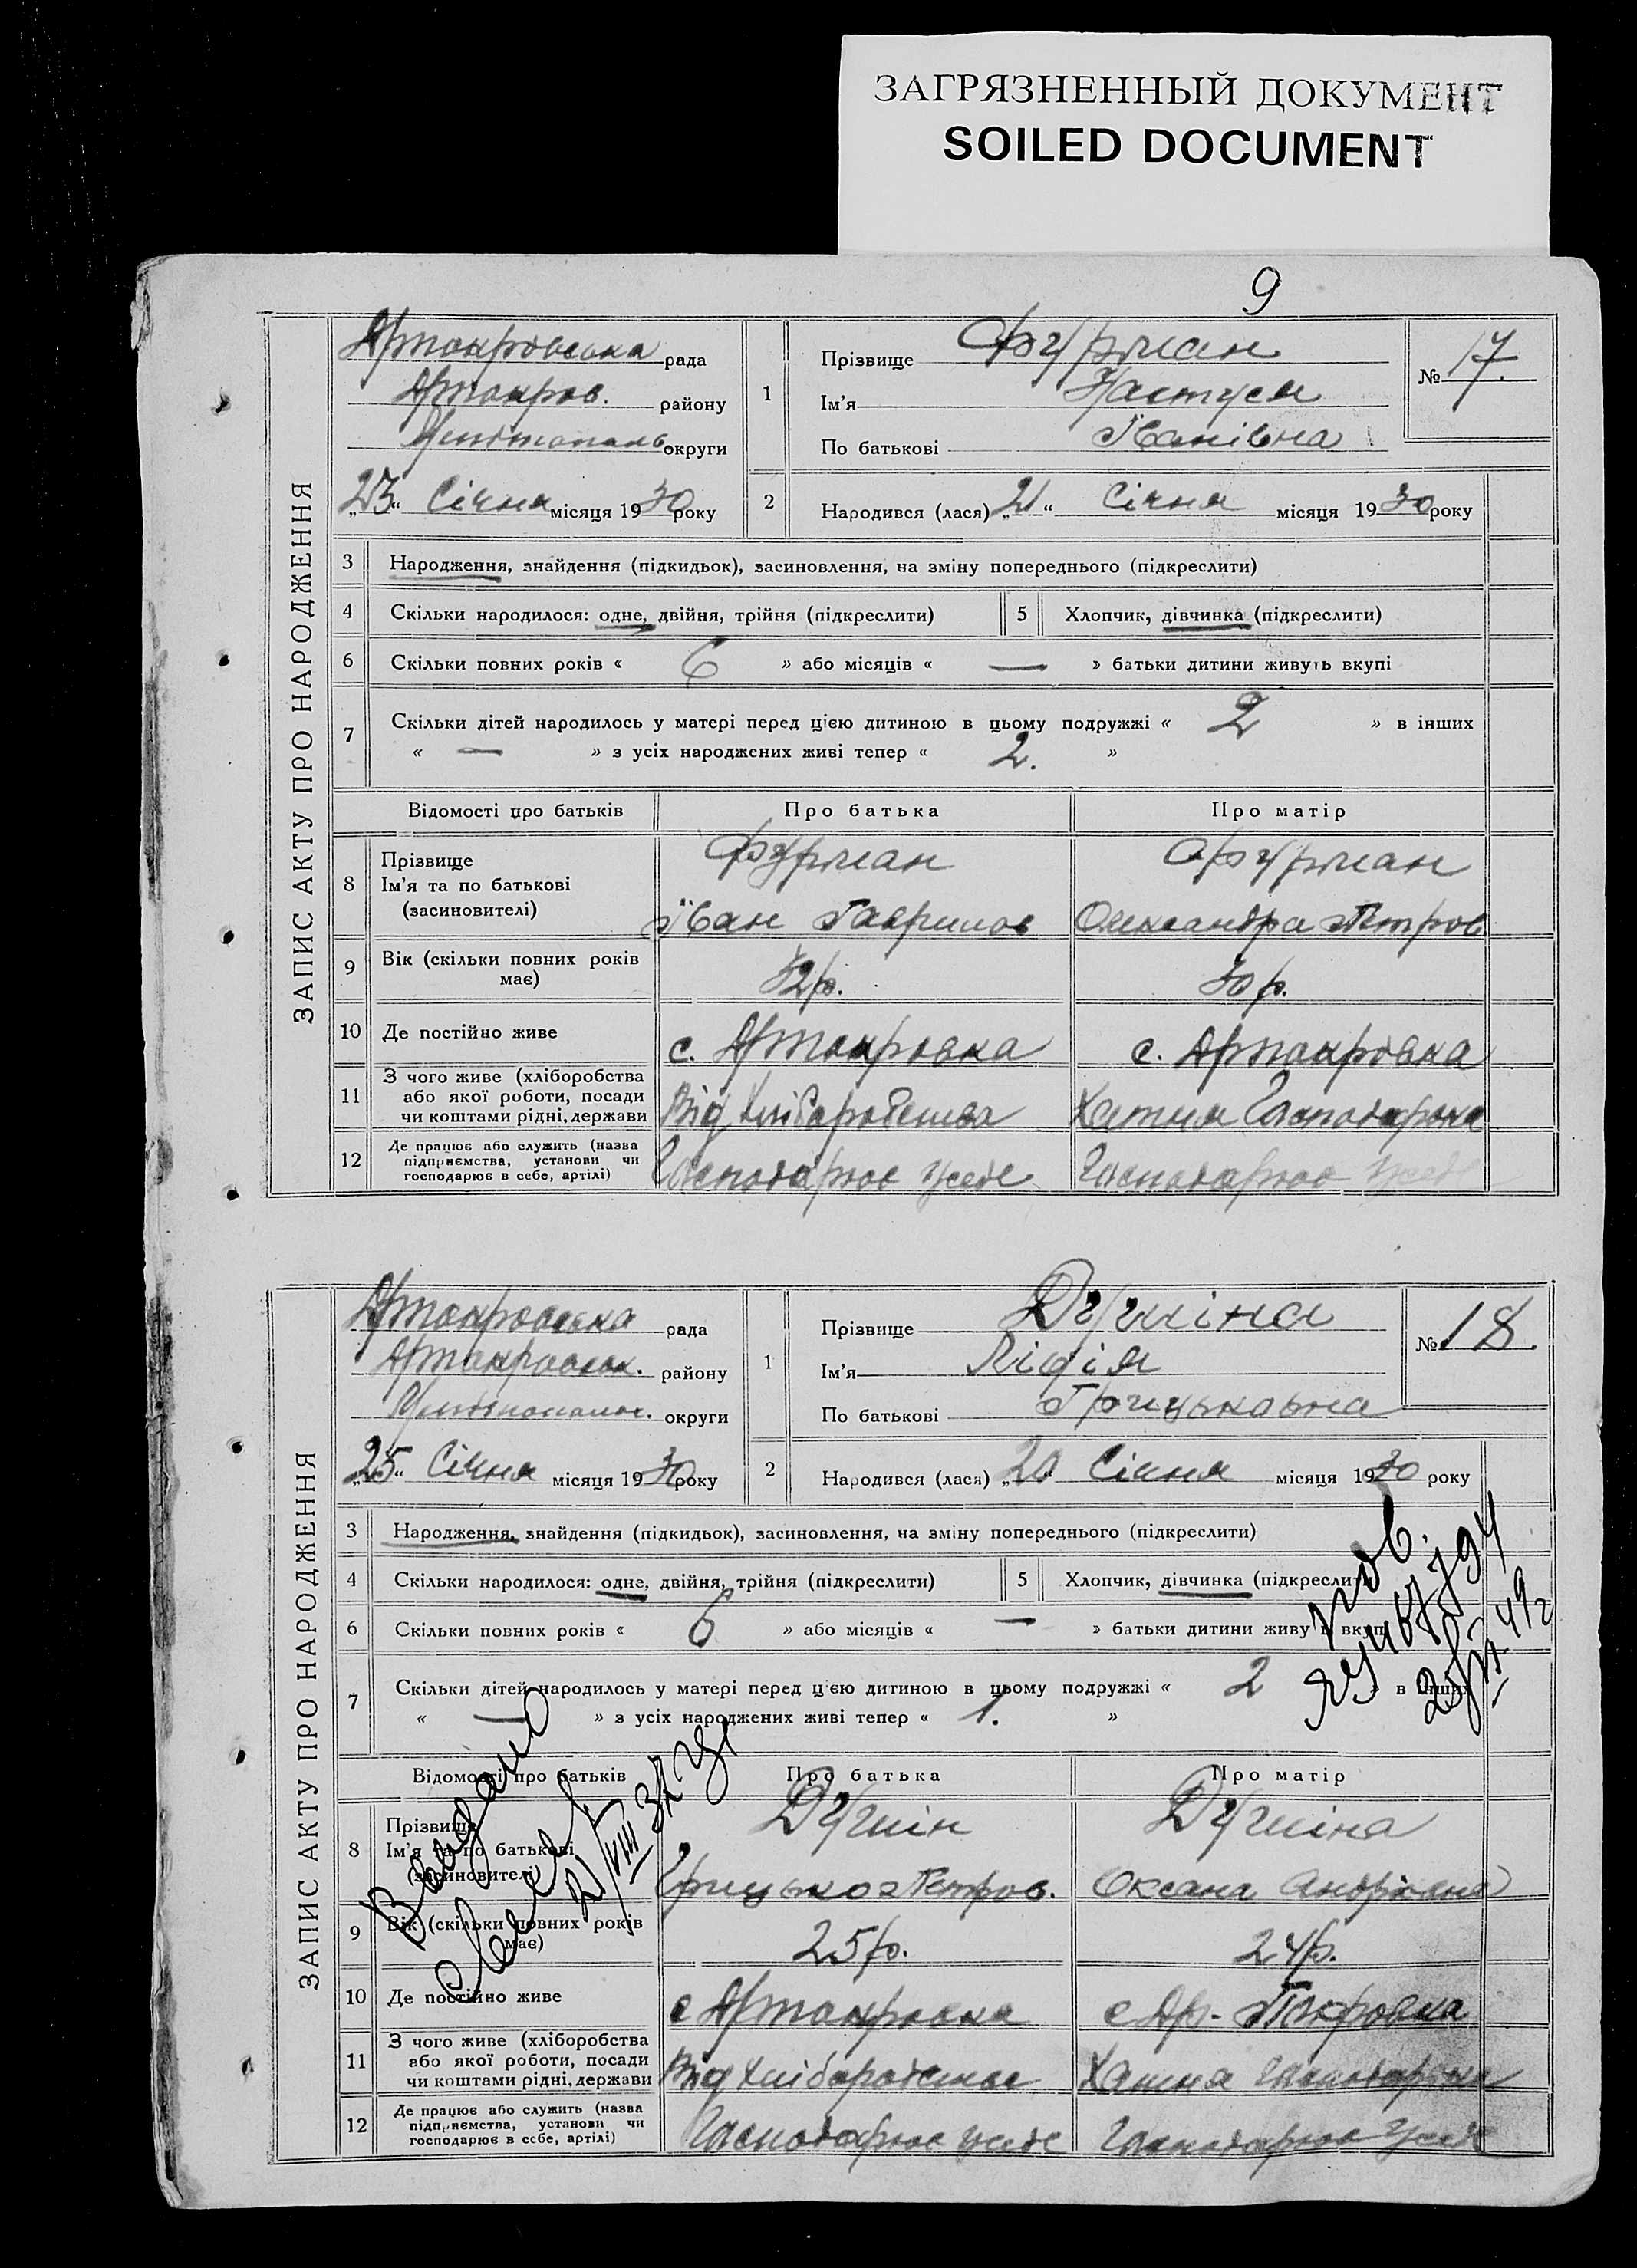 ЗАГРЯЗНЕННЫЙ ДОКУМЕНТ
SOILED DOCUMENT
9
ЗАПИС АКТУ ПРО НАРОДЖЕННЯ
Артопкровська рада
Артпокров. району
округи
„23“ Січня місяця 1930 року
1
Прізвище Фурман
Ім’я Настуся
По батькові Іванівна
№ 17.
2
Народився (лася) „21“ Січня місяця 1930 року
3 Народження, знайдення (підкидьок), засиновлення, на зміну попереднього (підкреслити)
4 Скільки народилося: одне, двійня, трійня (підкреслити) 5 Хлопчик, дівчинка (підкреслити)
6 Скільки повних років « 6 » або місяців « — » батьки дитини живуть вкупі
7 Скільки дітей народилось у матері перед цією дитиною в цьому подружжі « 2 » в інших
« — » з усіх народжених живі тепер « 2. »
Відомості про батьків Про батька Про матір
8 Прізвище
Ім’я та по батькові
(засиновителі)
Фурман
Іван Гаврилов
Фурман
Олександра Петров
9 Вік (скільки повних років
має)
32р. 30 р.
10 Де постійно живе с. Артпокровка с. Артпокровка
11 З чого живе (хліборобства
або якої роботи, посади
чи коштами рідні, держави
Від хліборобства Хатня Господарка
12 Де працює або служить (назва
підприємства, установи чи
господарює в себе, артілі)
Господарює усебе Господарює усебе
ЗАПИС АКТУ ПРО НАРОДЖЕННЯ
Артпокровська рада
району
округи
„25“ Січня місяця 1930 року
1
Прізвище
Ім’я Лідія
По батькові Грицьковна
№ 18.
2
Народився (лася) „20“ Січня місяця 1930 року
3 Народження, знайдення (підкидьок), засиновлення, на зміну попереднього (підкреслити)
4 Скільки народилося: одне, двійня, трійня (підкреслити) 5 Хлопчик, дівчинка (підкреслити)
6 Скільки повних років « 6 » або місяців « — » батьки дитини живуть вкупі
7 Скільки дітей народилось у матері перед цією дитиною в цьому подружжі « 2 » в інших
« — » з усіх народжених живі тепер « 1. »
Відомості про батьків Про батька Про матір
8 Прізвище
Ім’я та по батькові
(засиновителі)
Грицько Петров.
Оксана
9 Вік (скільки повних років
має)
25р. 24р.
10 Де постійно живе с Артпокровка с Ар. Покровка
11 З чого живе (хліборобства
або якої роботи, посади
чи коштами рідні, держави
Від хліборобства Хатня Господарка
12 Де працює або служить (назва
підприємства, установи чи
господарює в себе, артілі)
Господарює усебе Господарює усебе